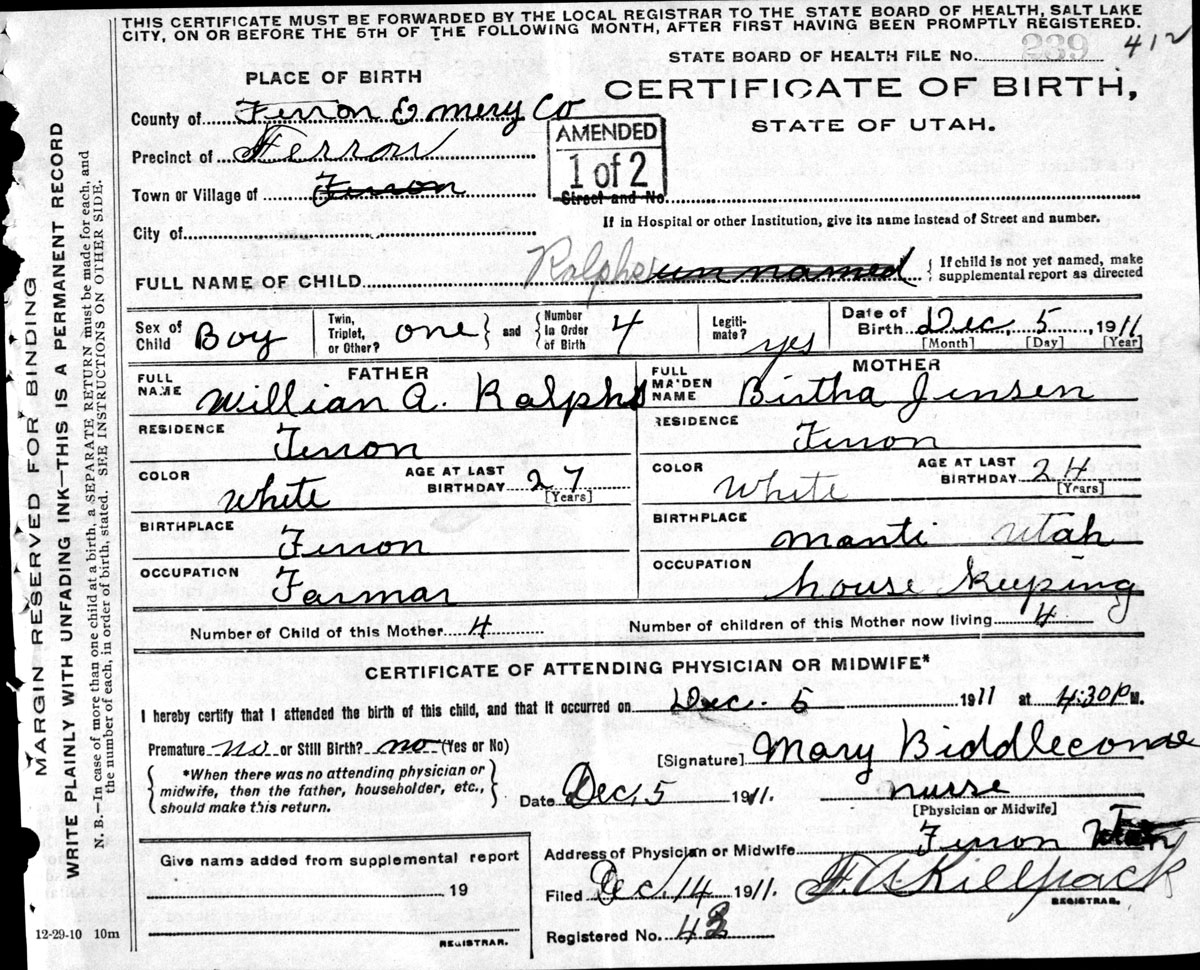 THIS CERTIFICATE MUST BE FORWARDED BY THE LOCAL REGISTRAR TO THE STATE BOARD OF HEALTH, SALT LAKE
CITY, ON OR BEFORE THE 5TH OF THE FOLLOWING MONTH, AFTER FIRST HAVING BEEN PROMPTLY REGISTERED.
STATE BOARD OF HEALTH FILE No. 239 412
PLACE OF BIRTH
CERTIFICATE OF BIRTH,
STATE OF UTAH.
County of Ferron Emery Co
AMENDED
1 of 2
Precinct of Ferron
Town or Village of Ferron
Street and No.
If in Hospital or other Institution, give its name instead of Street and number.
City of
FULL NAME OF CHILD Ralphs un named { If child is not yet named, make
supplemental report as directed
Sex of Child Boy
Twin, Triplet, or Other? one } and { Number In Order of Birth 4
Legiti-mate? yes
Date of Birth Dec, 5, 1911
[Month] [Day] [Year]
FATHER
FULL NAME Willian A. Ralphs
RESIDENCE Ferron
COLOR White
AGE AT LAST BIRTHDAY 27
[Years]
BIRTHPLACE Ferron
OCCUPATION Farmar
MOTHER
FULL MAIDEN NAME Birtha Jensen
RESIDENCE Ferron
COLOR White
AGE AT LAST BIRTHDAY 24
[Years]
BIRTHPLACE Manti Utah
OCCUPATION house keeping
Number of Child of this Mother 4
Number of children of this Mother now living 4
CERTIFICATE OF ATTENDING PHYSICIAN OR MIDWIFE*
I hereby certify that I attended the birth of this child, and that it occurred on Dec. 5 1911 at 4:30 P M.
Premature no or Still Birth? no (Yes or No)
[Signature] Mary Biddlecome
*When there was no attending physician or
midwife, then the father, householder, etc.,
should make this return.
Date Dec, 5 1911.
nurse
[Physician or Midwife]
Address of Physician or Midwife Ferron Utah
Give name added from supplemental report
19
REGISTRAR.
Filed Dec. 14 1911. F. A. Killpack
REGISTRAR.
Registered No. 43
12-29-10 10m
MARGIN RESERVED FOR BINDING
WRITE PLAINLY WITH UNFADING INK—THIS IS A PERMANENT RECORD
N. B.—In case of more than one child at a birth, a SEPARATE RETURN must be made for each, and
the number of each, in order of birth, stated. SEE INSTRUCTIONS ON OTHER SIDE.